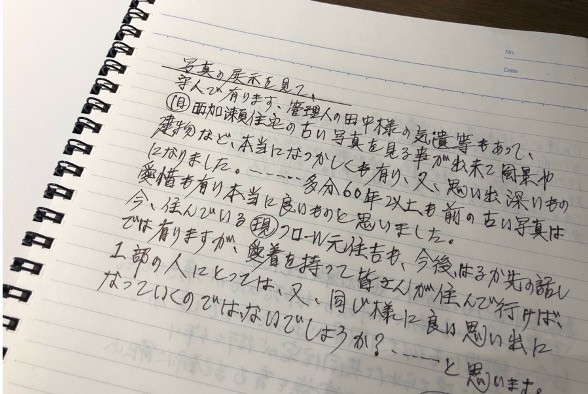 No.
Date
写真の展示を見て、
守人で有ります、管理人の田中様の気遣等もあって、
(旧)西加瀬住宅の古い写真を見る事が出来て風景や
建物など、本当になつかしくも有り、又、思い出深いもの
になりました。……多分60年以上も前の古い写真は
愛惜も有り本当に良いものと思いました。
今、住んでいる(現)フロール元住吉も、今後、はるか先の話し
では有りますが、愛着を持って皆さんが住んで行けば、
1部の人にとっては、又、同じ様に良い思い出に
なっていくのではないでしょうか?……と思います。